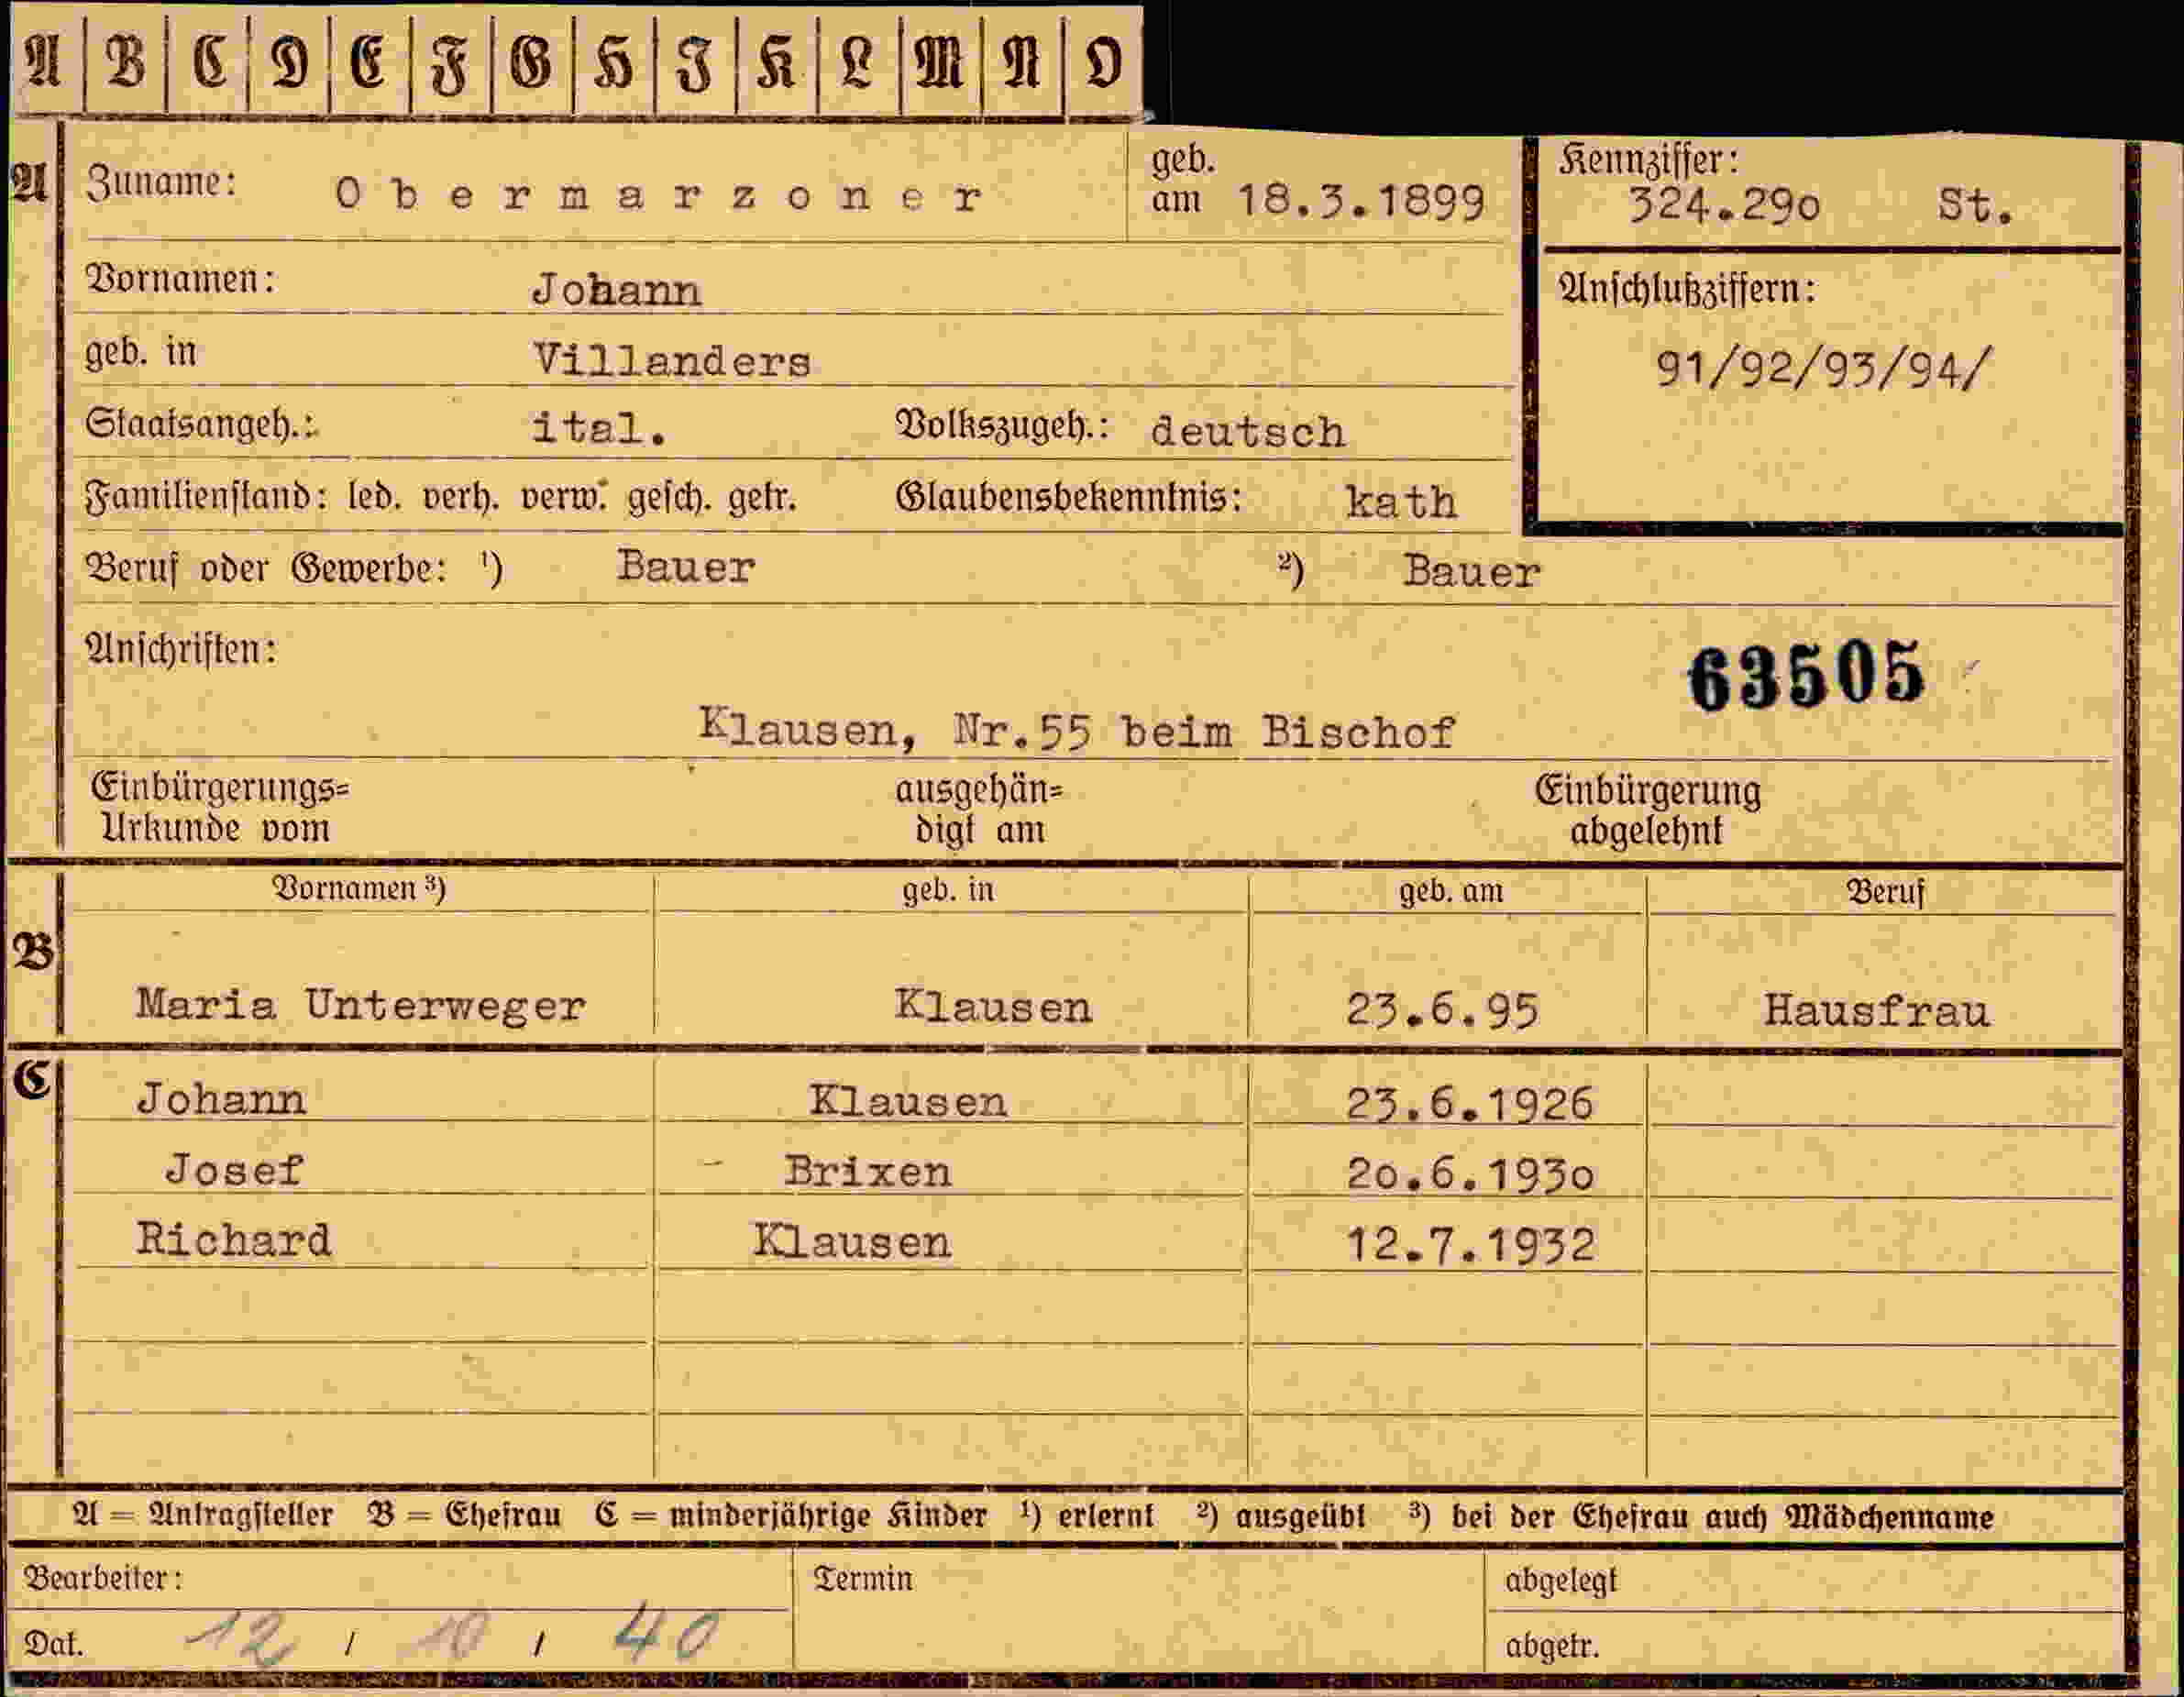 A B C D E F G H I K L M N O
A Zuname: Obermarzoner geb. am 18.3.1899 Kennziffer: 324.290 St.
Vornamen: Johann Anschlußziffern:
geb. in Villanders 91/92/93/94/
Staatsangeh.: ital. Volkszugeh.: deutsch
Familienstand: led. verh. verw. gesch. getr. Glaubensbekenntnis: kath
Beruf oder Gewerbe: ¹) Bauer ²) Bauer
Anschriften: 63505
Klausen, Nr.55 beim Bischof
Einbürgerungs= ausgehän= Einbürgerung
Urkunde vom digt am abgelehnt
Vornamen ³) geb. in geb. am Beruf
B
Maria Unterweger Klausen 23.6.95 Hausfrau
C Johann Klausen 23.6.1926
Josef - Brixen 20.6.1930
Richard Klausen 12.7.1932
A = Antragsteller B = Ehefrau C = minderjährige Kinder ¹) erlernt ²) ausgeübt ³) bei der Ehefrau auch Mädchenname
Bearbeiter: Termin abgelegt
Dat. 12 / 10 / 40 abgetr.